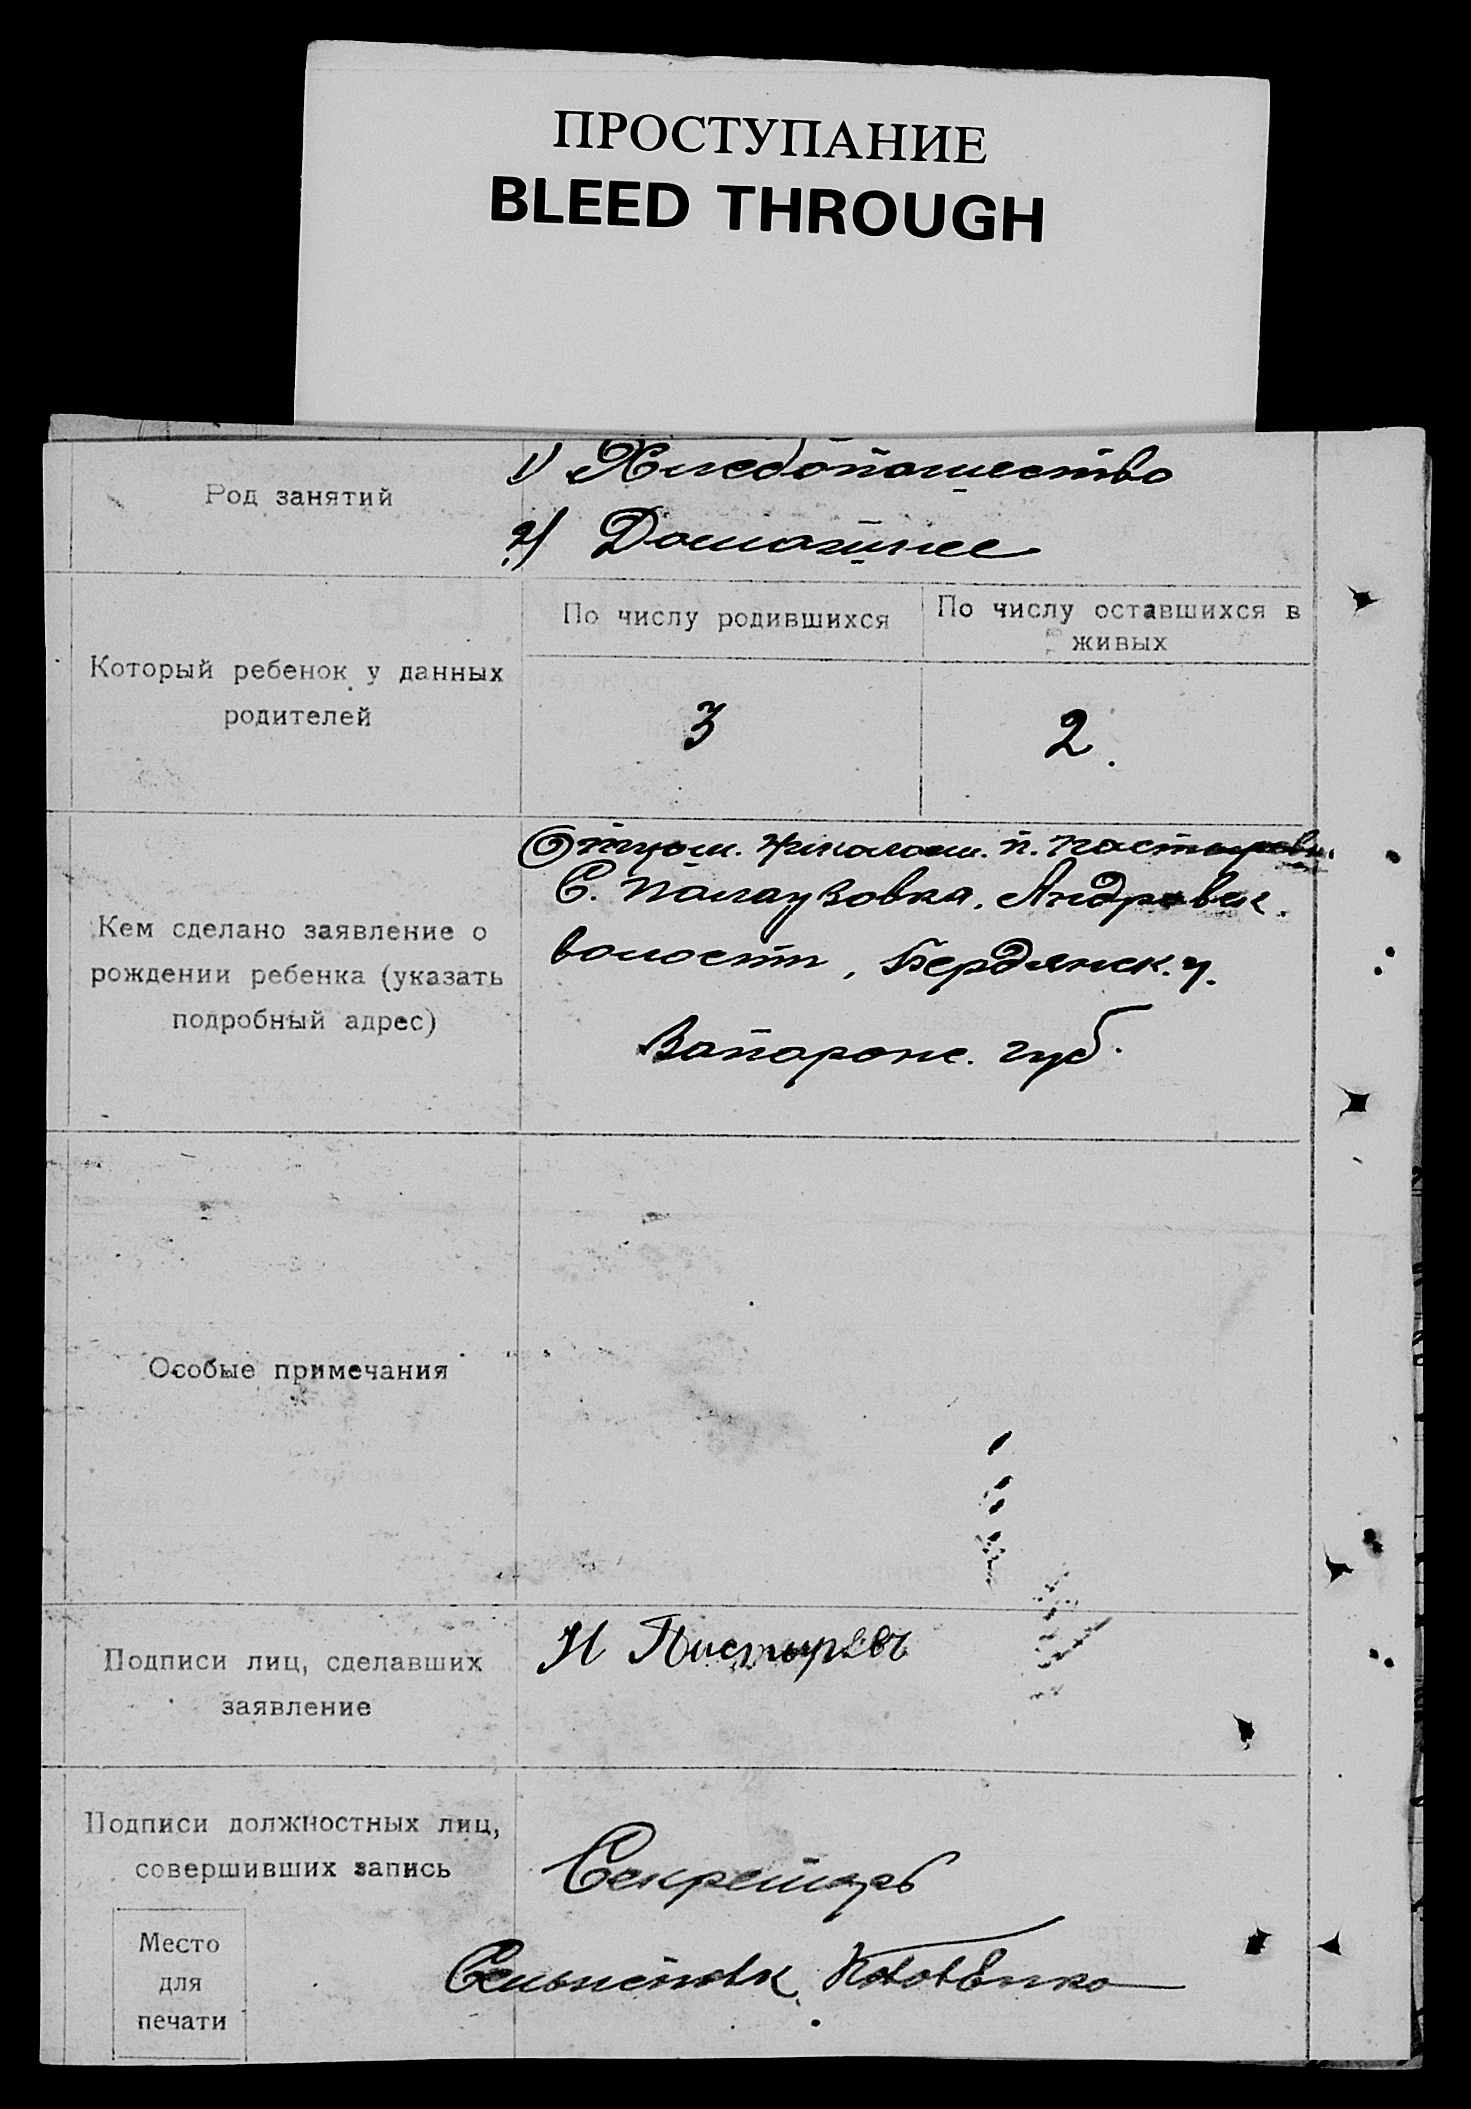 ПРОСТУПАНИЕ
BLEED THROUGH
Род занятий
1) Хлебопашество
2) Домашнее
Который ребенок у данных
родителей
По числу родившихся
По числу оставшихся в
живых
3
2.
Кем сделано заявление о
рождении ребенка (указать
подробный адрес)
Отцом. Николаем. П. Пастыревым.
С. Палаузовка, Андровск.
волости, Бердянск. у.
Запорож. губ.
Особые примечания
Подписи лиц, сделавших
заявление
Н Пастыревъ
Подписи должностных лиц,
совершивших запись
Секретарь
Место
для
печати